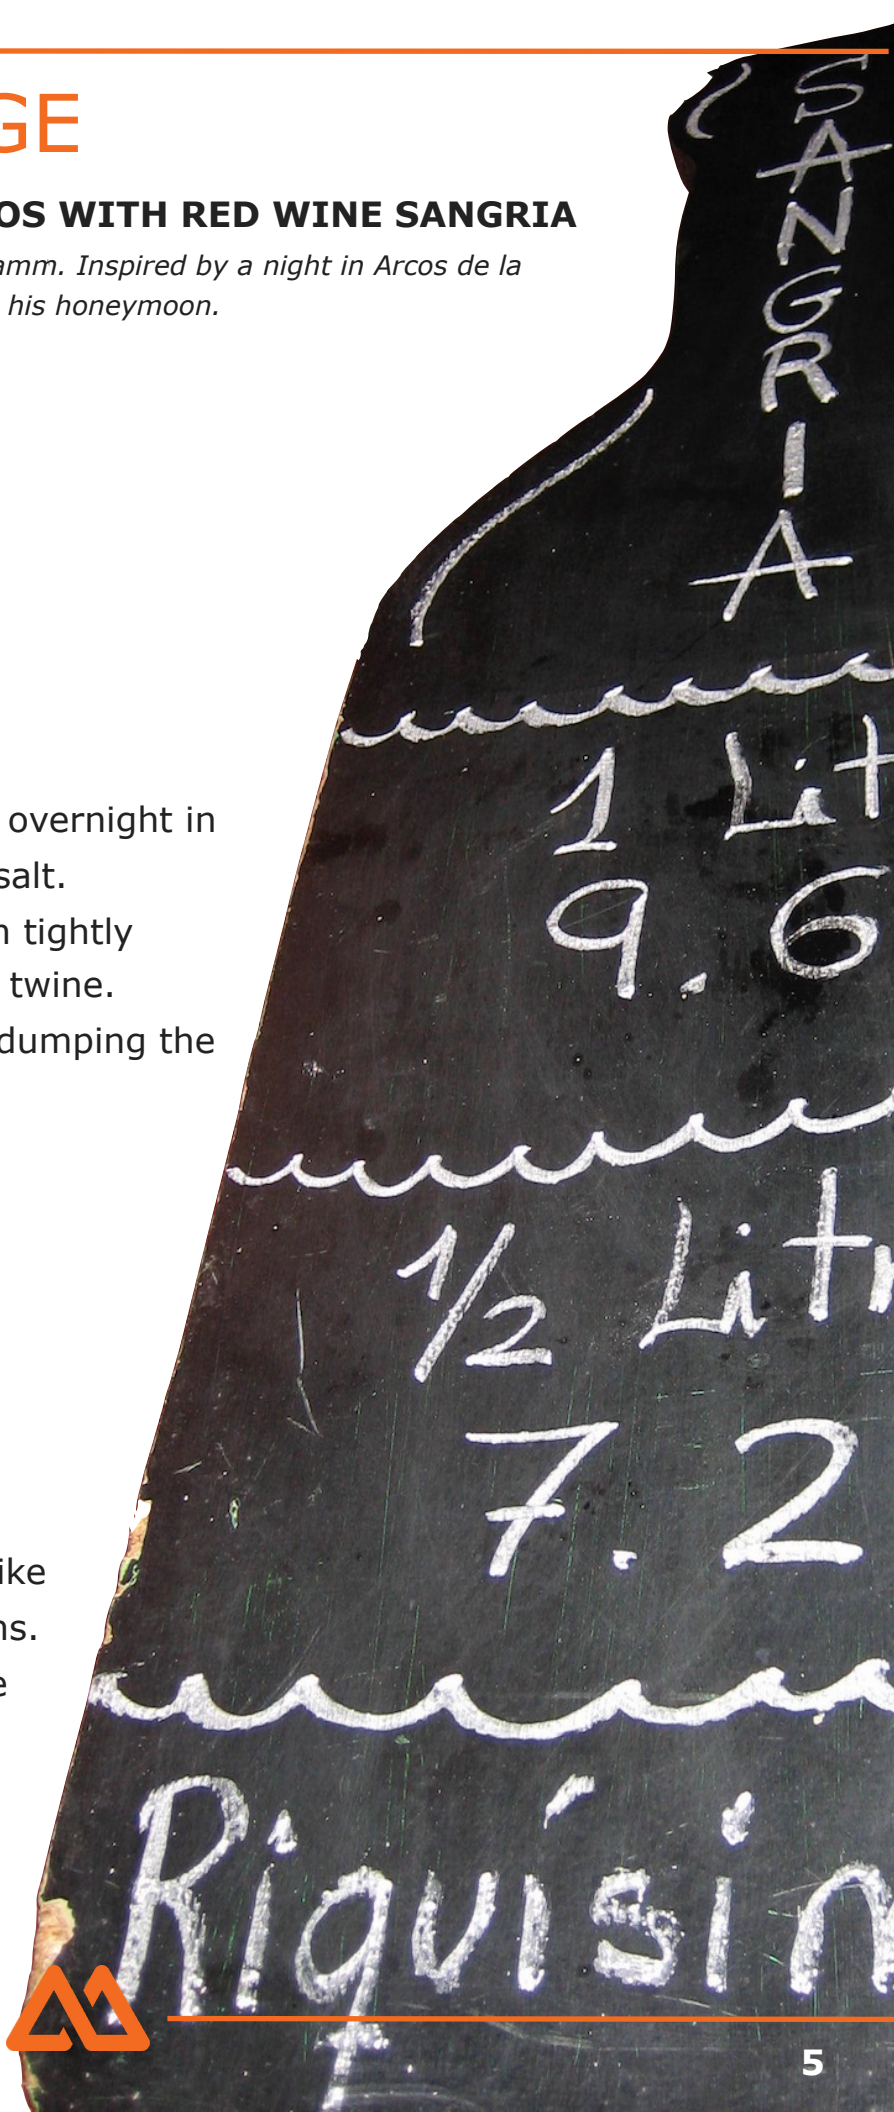 GE
OS WITH RED WINE SANGRIA
amm. Inspired by a night in Arcos de la
his honeymoon.
overnight in
salt.
n tightly
twine.
dumping the
ike
ns.
e
SANGRIA
1 Lit
9.6
1/2 Litr
7.2
Riquísin
5